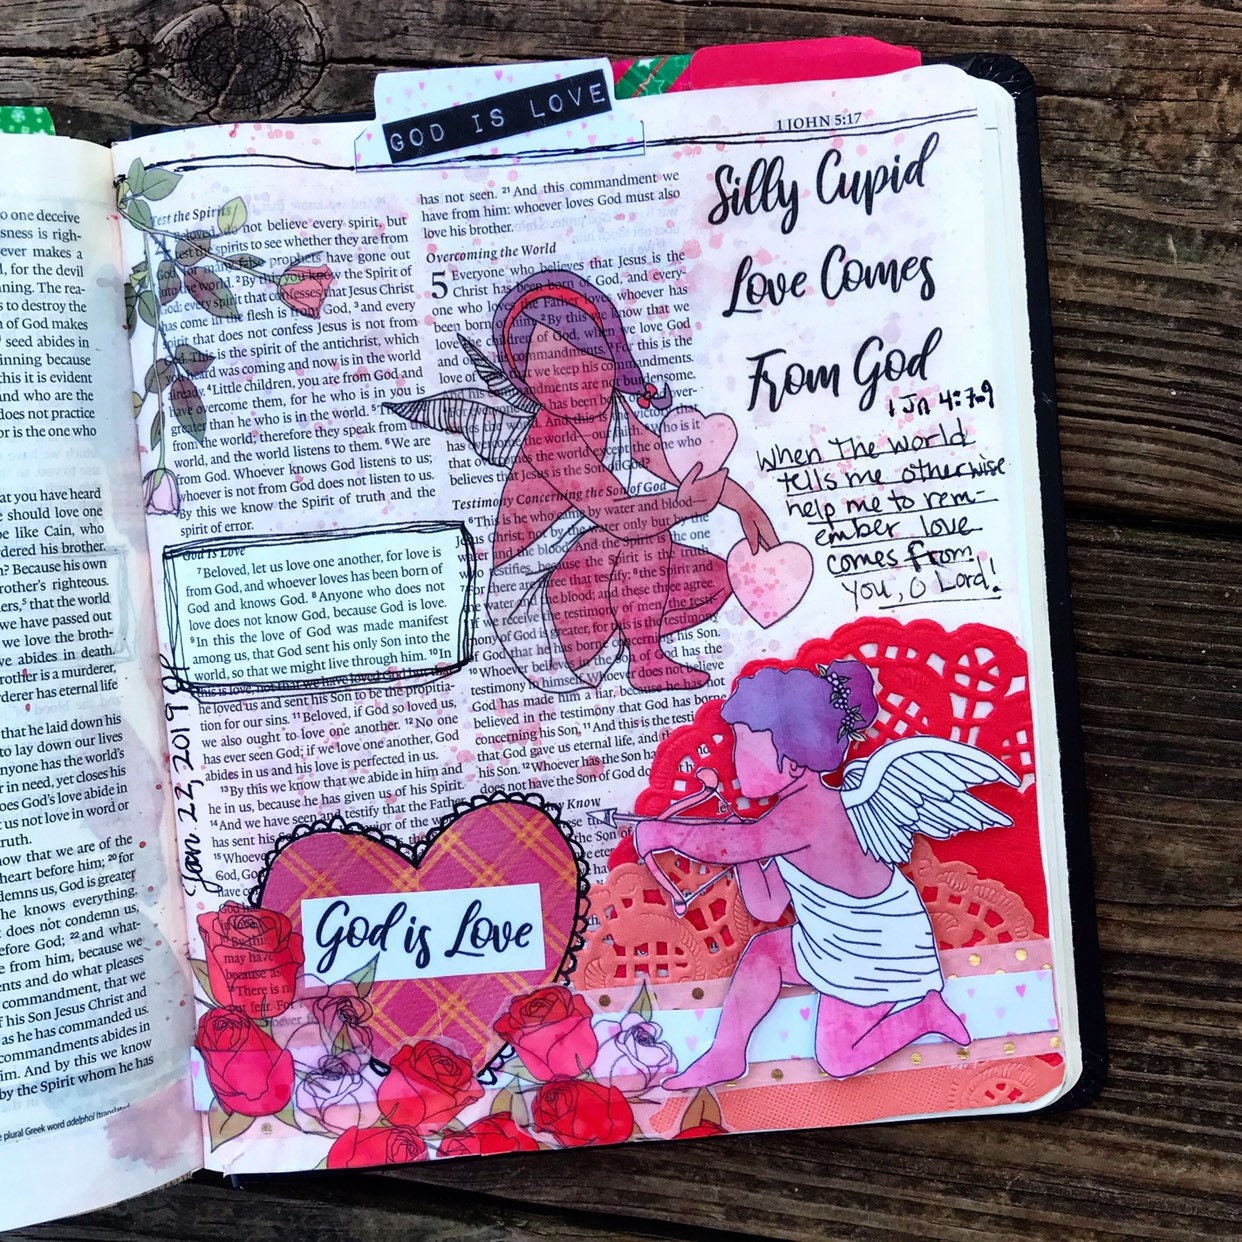 GOD IS LOVE
1 JOHN 5:17
o one deceive
sness is righ-
ever makes a
l, for the devil
ning. The rea-
s to destroy the
n of God makes
seed abides in
inning because
this it is evident
and who are the
does not practice
or is the one who
at you have heard
e should love one
be like Cain, who
dered his brother.
n? Because his own
rother's righteous.
ers,⁵ that the world
we have passed out
we love the broth-
ve abides in death.
rother is a murderer,
rderer has eternal life
that he laid down his
to lay down our lives
nyone has the world's
r in need, yet closes his
oes God's love abide in
t us not love in word or
ruth.
now that we are of the
heart before him; ²⁰ for
demns us, God is greater
he knows everything.
t does not condemn us,
efore God; ²² and what-
e from him, because we
ents and do what pleases
commandment, that we
f his Son Jesus Christ and
as he has commanded us.
ommandments abides in
im. And by this we know
by the Spirit whom he has
plural Greek word adelphoi (translated
Test the Spirits
not believe every spirit, but
spirits to see whether they are from
God, for many false prophets have gone out
into the world. ²By this you know the Spirit of
God: every spirit that confesses that Jesus Christ
has come in the flesh is from God, ³and every
spirit that does not confess Jesus is not from
This is the spirit of the antichrist, which
you heard was coming and now is in the world
already. ⁴Little children, you are from God and
have overcome them, for he who is in you is
greater than he who is in the world. ⁵
from the world; therefore they speak from the
world, and the world listens to them. ⁶We are
from God. Whoever knows God listens to us;
whoever is not from God does not listen to us.
By this we know the Spirit of truth and the
spirit of error.
God Is Love
⁷Beloved, let us love one another, for love is
from God, and whoever loves has been born of
God and knows God. ⁸Anyone who does not
love does not know God, because God is love.
⁹In this the love of God was made manifest
among us, that God sent his only Son into the
world, so that we might live through him. ¹⁰In
this is love, not that we have loved God but that
he loved us and sent his Son to be the propitia-
tion for our sins. ¹¹Beloved, if God so loved us,
we also ought to love one another. ¹²No one
has ever seen God; if we love one another, God
abides in us and his love is perfected in us.
¹³By this we know that we abide in him and
he in us, because he has given us of his Spirit.
¹⁴And we have seen and testify that the Father
has sent his
¹⁵Whoever
God,
have c
God is Love
Jan. 22, 2019
has not seen. ²¹And this commandment we
have from him: whoever loves God must also
love his brother.
Overcoming the World
5 Everyone who believes that Jesus is the
Christ has been born of God, and every-
one who loves the Father loves whoever has
been born of him. ²By this we know that we
love the children of God, when we love God
and obey his commandments. ³For this is the
love of God, that we keep his commandments.
And his commandments are not burdensome.
has been born of God over-
the world. And this is the victory that
has overcome the world—our faith. ⁵Who is it
that overcomes the world except the one who
believes that Jesus is the Son of God?
Testimony Concerning the Son of God
⁶This is he who came by water and blood—
Jesus Christ; not by the water only but by the
water and the blood. And the Spirit is the one
who testifies, because the Spirit is the truth.
⁷For there are three that testify: ⁸the Spirit and
the water and the blood; and these three agree.
⁹If we receive the testimony of men, the testi-
mony of God is greater, for this is the testimony
of God that he has borne concerning his Son.
¹⁰Whoever believes in the Son of God has the
testimony in himself. Whoever does not believe
God has made him a liar, because he has not
believed in the testimony that God has borne
concerning his Son. ¹¹And this is the testi
that God gave us eternal life, and
his Son. ¹²Whoever has the Son ha
not have the Son of God do
Know
Silly Cupid
Love Comes
From God
1 Jn 4:7-9
When the world
tells me otherwise
help me to rem-
ember love
comes from
You, O Lord!